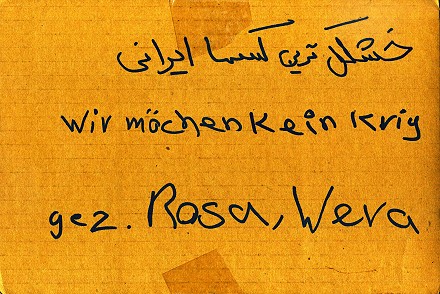 خشکل ترین ایرانی
wir möchen kein krig
gez. Rosa, Wera